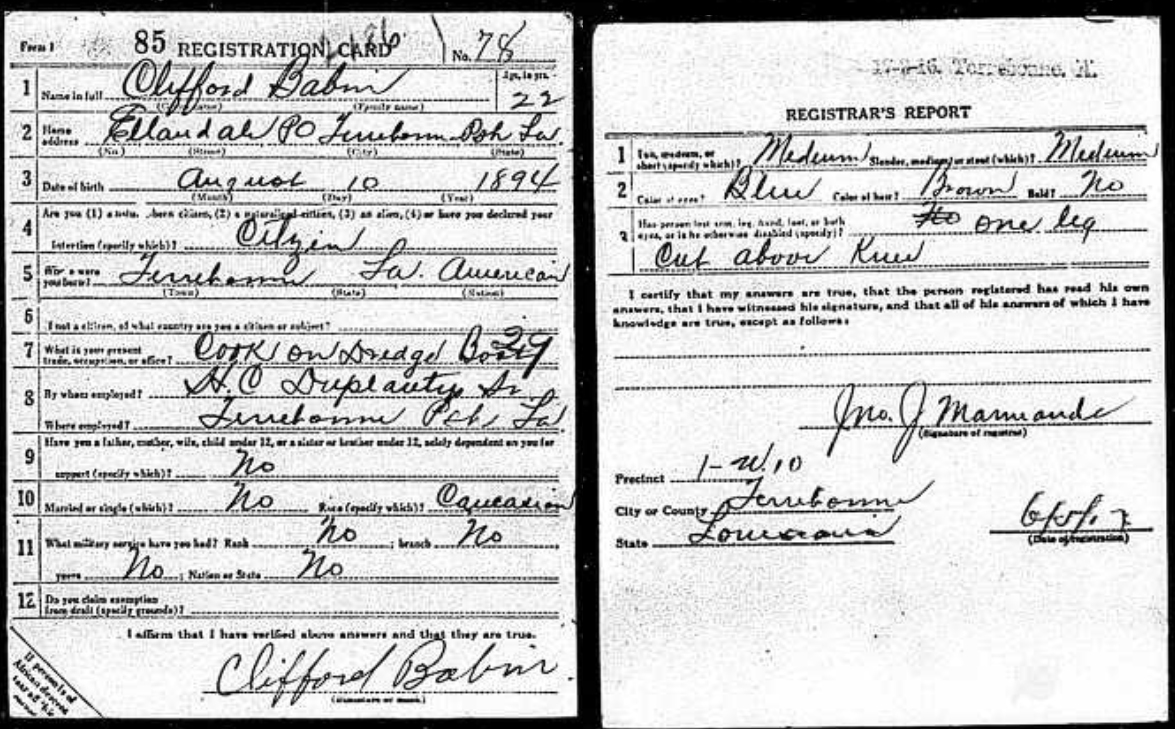 Form 1 85 REGISTRATION CARD No. 78
1 Name in full Clifford Babin Age, in yrs. 22
(Given name) (Family name)
2 Home address Ellandale PO Terrebonne Psh La
(No.) (Street) (City) (State)
3 Date of birth August 10 1894
(Month) (Day) (Year)
4 Are you (1) a natural-born citizen, (2) a naturalized citizen, (3) an alien, (4) or have you declared your
intention (specify which)? Citizen
5 Where were you born? Terrebonne La. American
(Town) (State) (Nation)
6 If not a citizen, of what country are you a citizen or subject?
7 What is your present trade, occupation, or office? Cook on Dredge Boat 29
8 By whom employed? H. C
Where employed? Terrebonne Psh La
9 Have you a father, mother, wife, child under 12, or a sister or brother under 12, solely dependent on you for
support (specify which)? No
10 Married or single (which)? No Race (specify which)? Caucasian
11 What military service have you had? Rank No ; branch No
years No ; Nation or State No
12 Do you claim exemption
from draft (specify grounds)?
I affirm that I have verified above answers and that they are true.
Clifford Babin
(Signature or mark)
If person is of
African descent
tear off this
corner
17-3-16. Terrebonne, A.
REGISTRAR'S REPORT
1 Tall, medium, or short (specify which)? Medium Slender, medium, or stout (which)? Medium
2 Color of eyes? Blue Color of hair? Brown Bald? No
3 Has person lost arm, leg, hand, foot, or both
eyes, or is he otherwise disabled (specify)? No one leg
Cut above Knee
I certify that my answers are true, that the person registered has read his own
answers, that I have witnessed his signature, and that all of his answers of which I have
knowledge are true, except as follows:
Jno. J Marmande
(Signature of registrar)
Precinct 1-W.10
City or County Terrebonne
State Louisiana
6/5/17
(Date of registration)